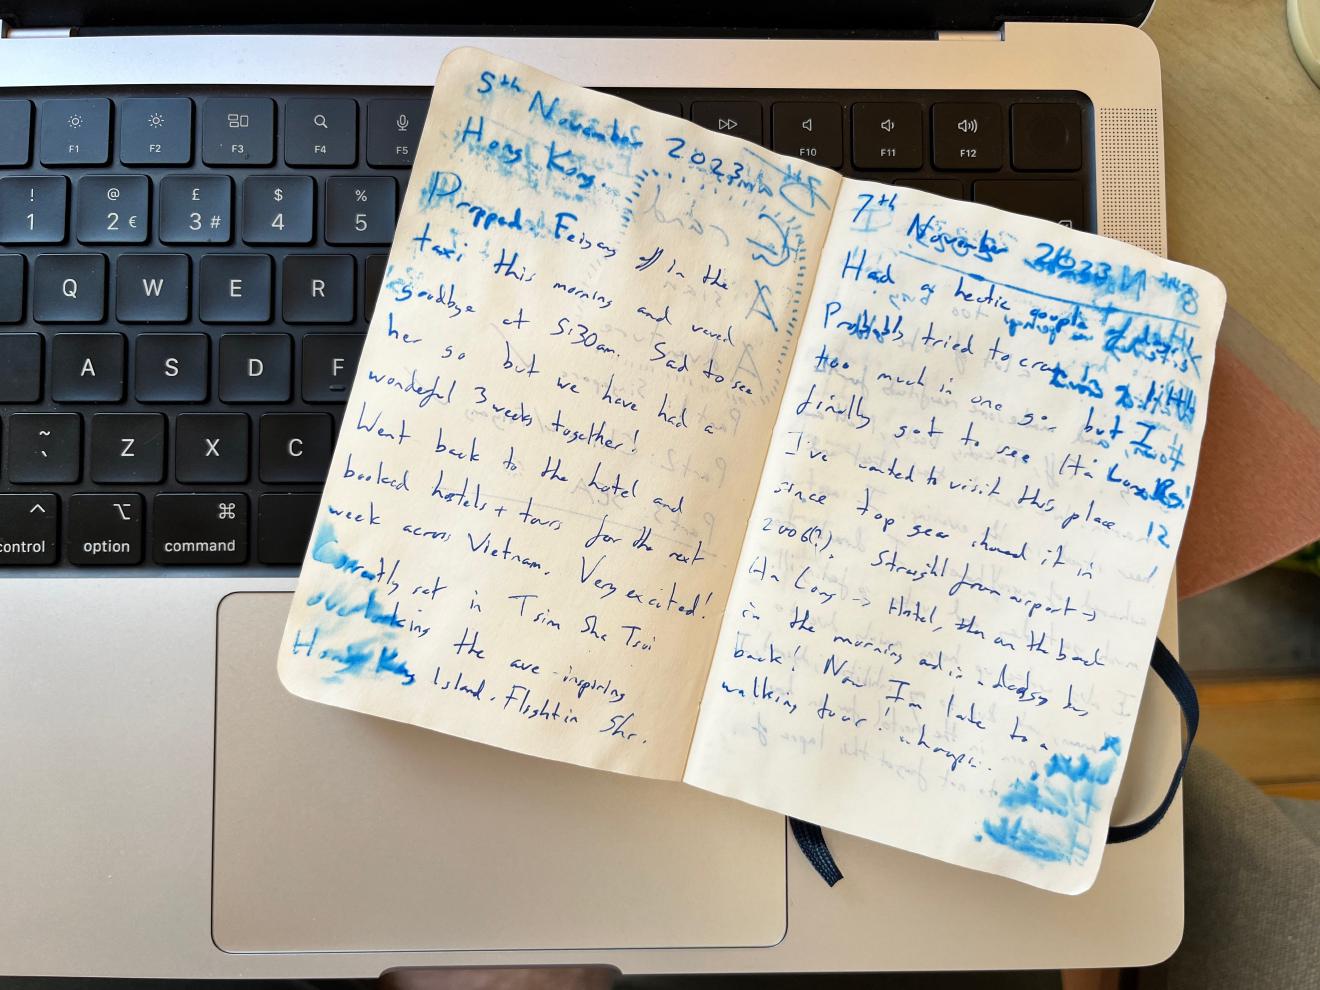 F1
F2
F3
F4
F5
F10
F11
F12
!
1
@
2 €
£
3 #
$
4
%
5
Q
W
E
R
A
S
D
F
~
`
Z
X
C
control
option
command
5th November 2023
Hong Kong
Dropped Feiyang in the
taxi this morning and waved
goodbye at 5:30am. Sad to see
her go but we have had a
wonderful 3 weeks together!
Went back to the hotel and
booked hotels + tours for the next
week across Vietnam. Very excited!
Currently sat in Tsim Sha Tsui
overlooking the awe-inspiring
Hong Kong Island. Flight in 5hr.
7th November 2023
Had a hectic couple of days.
Probably tried to cram
too much in one go but I
finally got to see Ha Long Bay!
I've wanted to visit this place
since top gear showed it in
2006(?). Straight from airport →
Ha Long → Hotel, then on the boat
in the morning and in a bus
back! Now I'm late to a
walking tour! whoops.